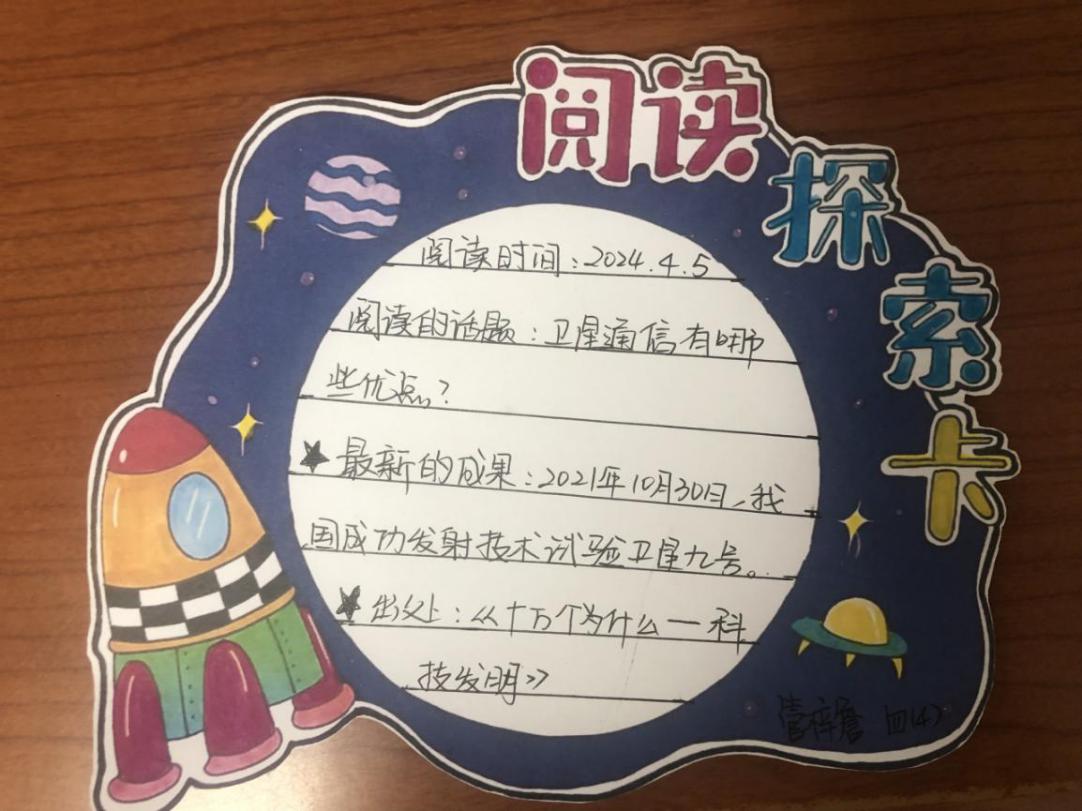 阅读探索卡
阅读时间：2024.4.5
阅读的话题：卫星通信有哪
些优点？
★最新的成果：2021年10月30日，我
国成功发射技术试验卫星九号。
★出处：《十万个为什么一科
技发明》
管梓詹 四(4)